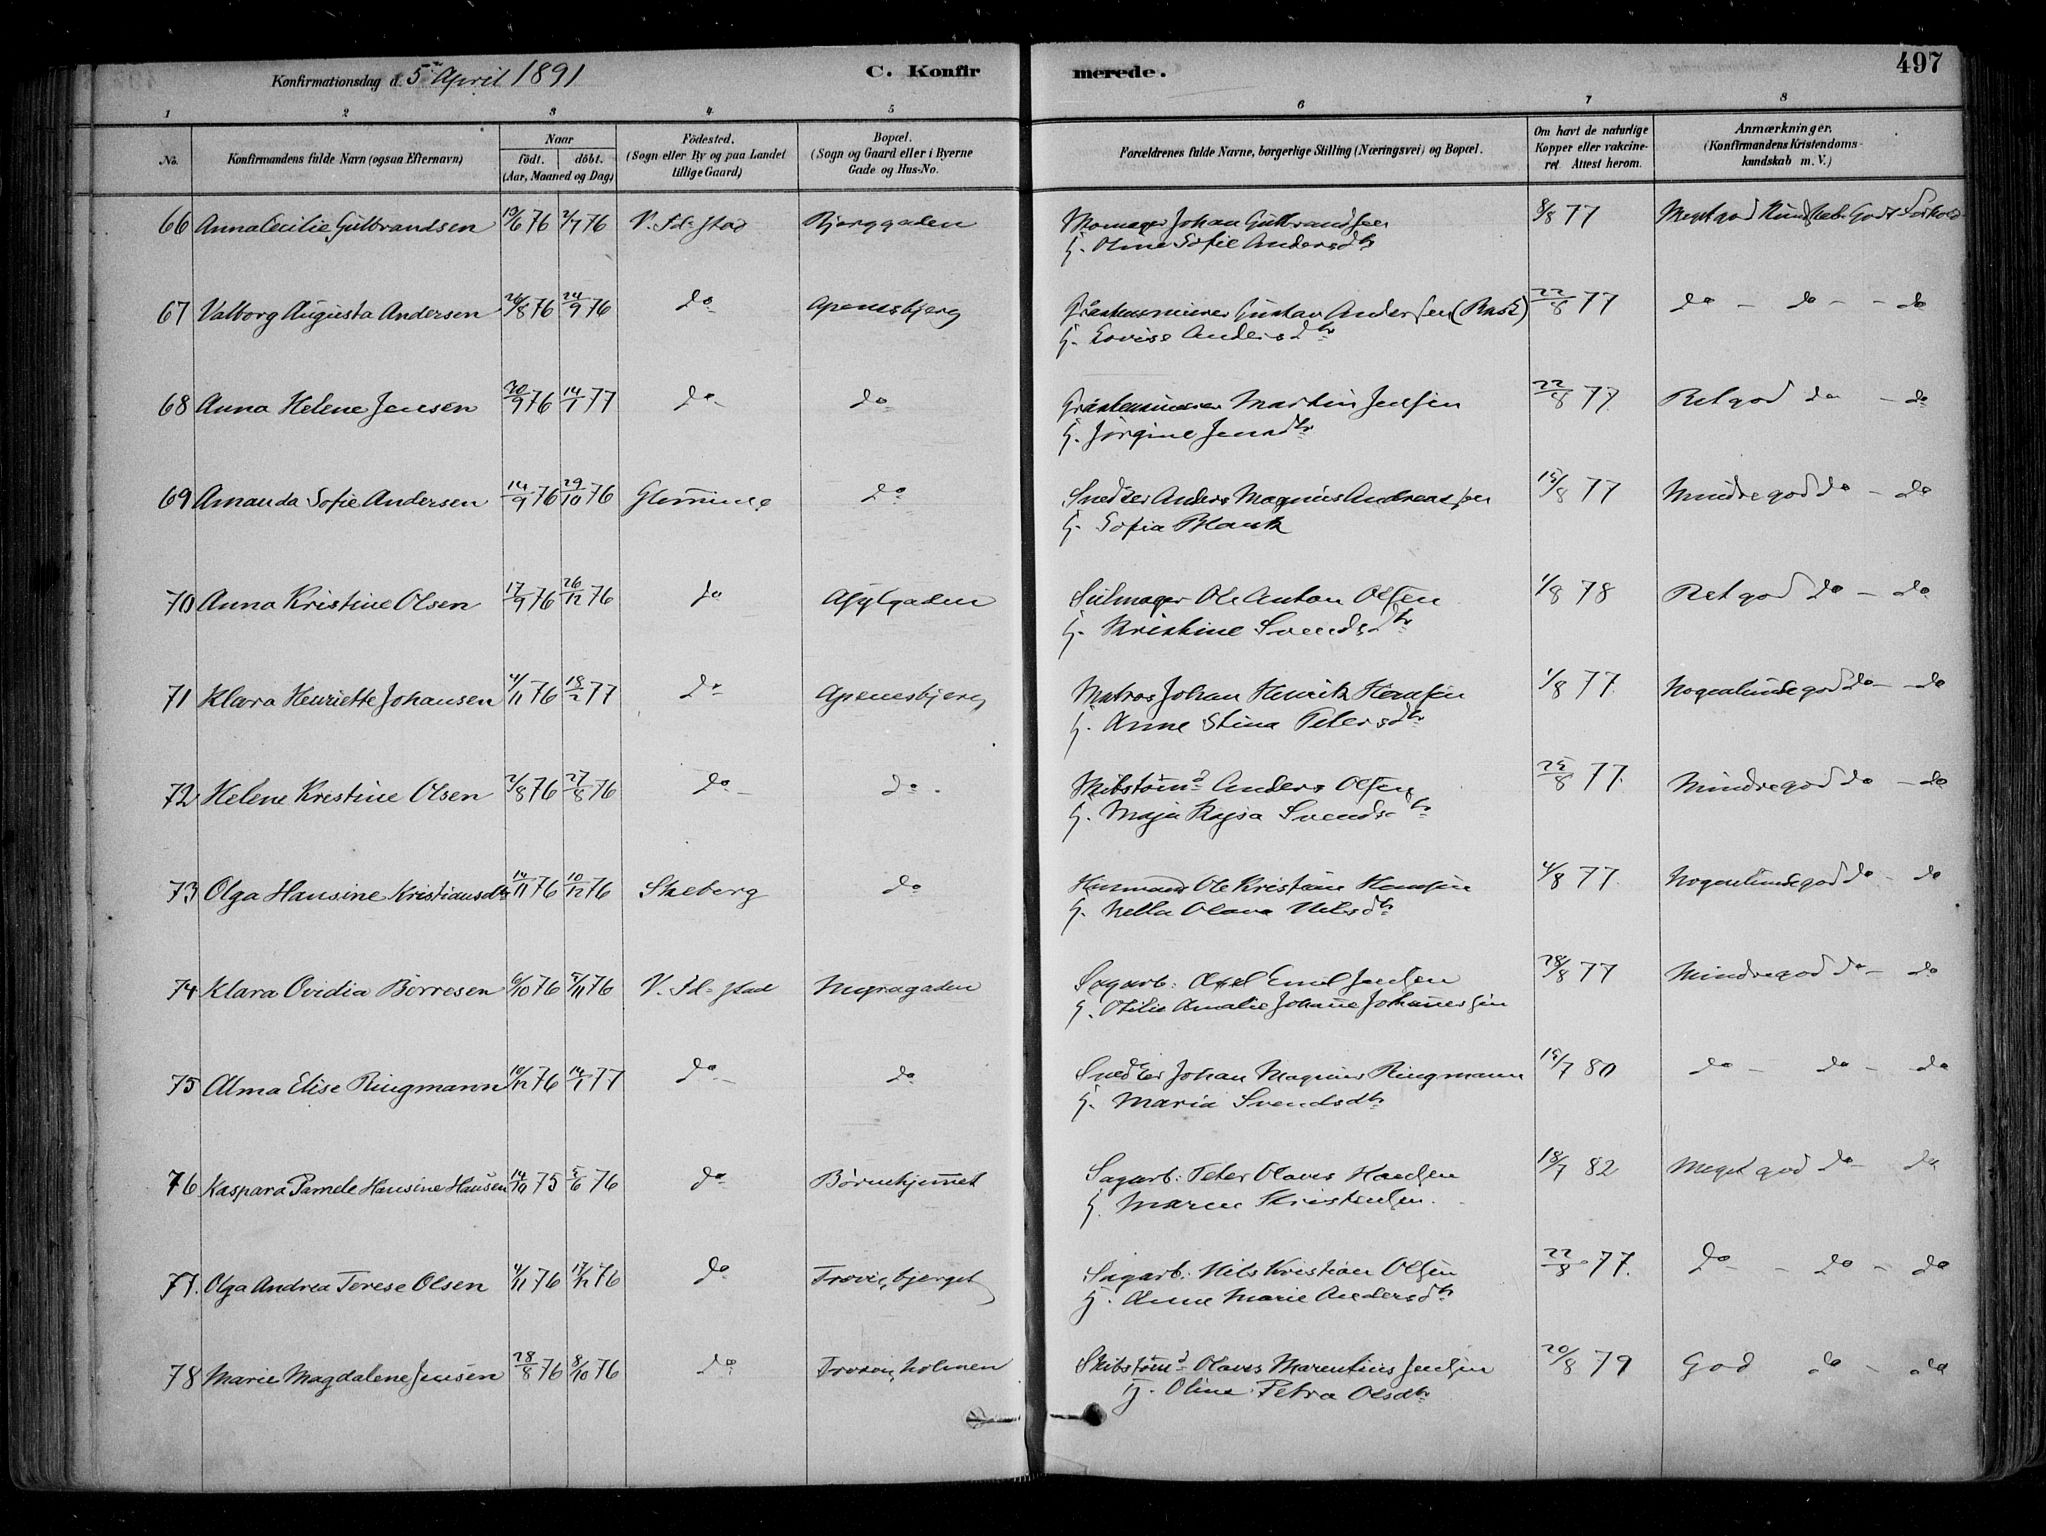 497
Konfirmationsdag d. 5te April 1891
C. Konfirmerede.
1 2 3 4 5 6 7 8
No.
Konfirmandens fulde Navn (ogsaa Efternavn)
Naar
födt. döbt.
(Aar, Maaned og Dag)
Födested.
(Sogn eller By og paa Landet
tillige Gaard)
Bopæl.
(Sogn og Gaard eller i Byerne
Gade og Hus-No.
Forældrenes fulde Navne, borgerlige Stilling (Næringsvei) og Bopæl.
Om havt de naturlige
Kopper eller vakcine-
ret Attest herom.
Anmærkninger.
(Konfirmandens Kristendoms-
kundskab m. V.)
66 Anna Cecilie Gulbrandsen 13/6 76 2/7 76 V. Fd:stad Bjerggaden Skomager Johan Gulbrandsen 8/8 77 Meget god Kundskab. Godt Forhold
H. Oline Sofie Andersdtr
67 Valborg Augusta Andersen 26/8 76 24/9 76 do Apenesbjerg Gråstensminer Gustav Andersen (Rask) 22/8 77 do - do - - do
H. Lovise Andersdtr
68 Anna Helene Jensen 20/9 76 14/1 77 do do Gråstensminer Martin Jensen 22/8 77 Ret god do - do
H. Jørgine Jensdtr
69 Amanda Sofie Andersen 14/9 76 29/10 76 Glemminge do Snedker Anders Magnus Andreassen 15/8 77 Mindre god do - do
H. Sofia Blank
70 Anna Kristine Olsen 17/9 76 26/12 76 do Asylgaden Seilmager Ole Anton Olsen 1/8 78 Ret god do - do
H. Kristine Svendsdtr
71 Klara Henriette Johansen 4/11 76 18/2 77 do Apenesbjerg Matros Johan Henrik Hansen 1/8 77 Nogenlunde god do - do
H. Anne Stina Petersdtr
72 Helene Kristine Olsen 2/8 76 27/8 76 do do Skibstømd Anders Olsen 25/8 77. Mindre god do - do
H. Maja Kajsa Svendsdtr
73 Olga Hansine Kristiansdtr 14/11 76 10/12 76 Skeberg do Husmand Ole Kristian Hansen 4/8 77. Nogenlunde god do - do
H. Nella Olava Nilsdtr
74 Klara Ovidia Børresen 6/10 76 5/11 76 V. Fd:stad Myragaden Sagarb: Axel Emil Jensen 28/8 77 Mindre god do - do
H. Otilie Amalie Johanne Johannessen
75 Alma Elise Ringmann 10/12 76 14/1 77 do do Snedker Johan Magnus Ringmann 15/7 80 do - do - do
H. Maria Svendsdtr
76 Kaspara Pamele Hansine Hansen 14/10 75 5/6 76 do Børnehjemmet Sagarb: Peter Olaves Hansen 18/7 82 Meget god do - do
H. Maren Kristensen.
77. Olga Andrea Terese Olsen 4/11 76 17/12 76 do Trosvigbjerget Sagarb: Nils Kristian Olsen 22/8 77. do - do - do
H. Anne Marie Andersdtr
78 Marie Magdalene Jensen 28/8 76 8/10 76 do Trosvigholmen Skibstømd Olaves Marentius Jensen 20/8 79 God do - do
H. Oline Petra Olsdtr